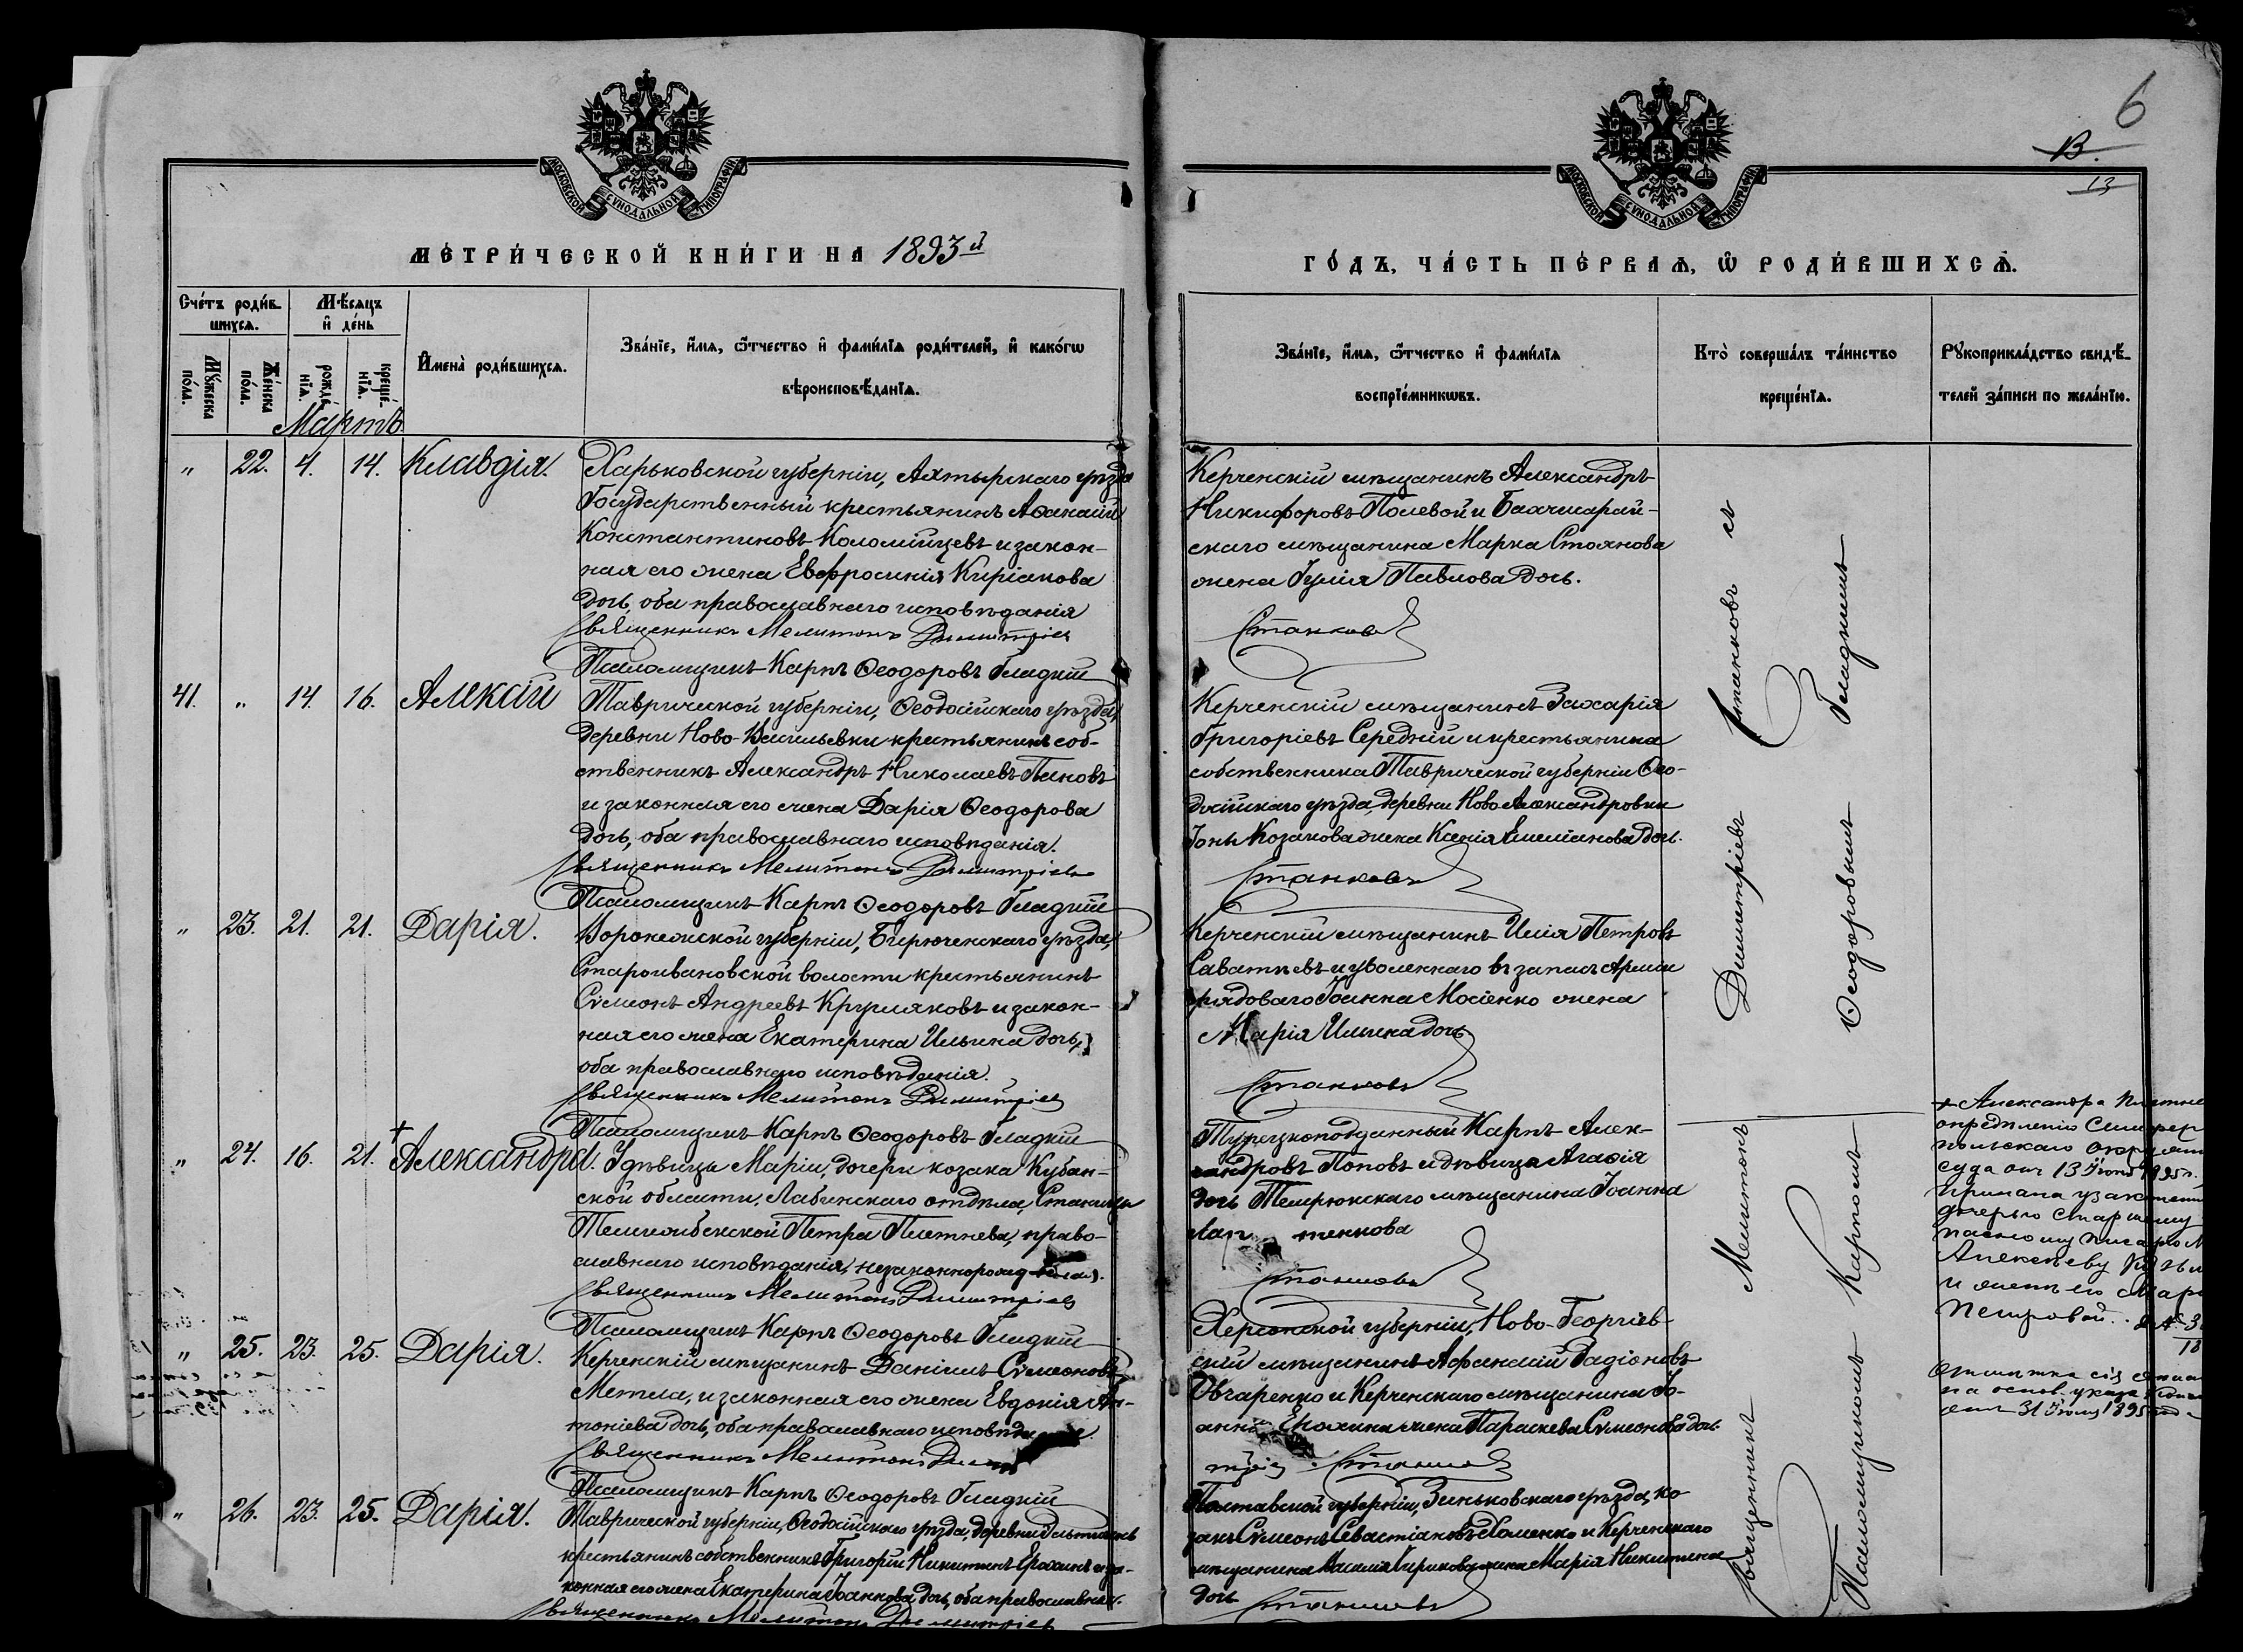 6
13.
13
МОСКОВСКОЙ СѴНОДАЛЬНОЙ ТИПОГРАФІИ
МОСКОВСКОЙ СѴНОДАЛЬНОЙ ТИПОГРАФІИ
МЕ́ТРИ́ЧЕСКОЙ КНИ́ГИ НА 1893й
ГО́ДЪ, ЧА́СТЬ ПЕ́РВАѦ, Ѿ РОДИ́ВШИХСѦ.
Сче́тъ роди́в-
шихсѧ.
Мꙋ́жеска по́ла.
Же́нска по́ла.
Мѣ́сѧцъ
и де́нь
рожде́нїѧ.
креще́нїѧ.
Имена̀ роди́вшихсѧ.
Зва́нїе, и́мѧ, ѻ́тчество и фами́лїѧ роди́телей, и како́гѡ
вѣроисповѣ́данїѧ.
Зва́нїе, и́мѧ, ѻ́тчество и фами́лїѧ
воспрїе́мникѡвъ.
Кто̀ соверша́лъ та́инство
креще́нїѧ.
Рꙋкоприкла́дство свидѣ́-
телей за́писи по жела́нїю.
Мартъ
" 22. 4. 14. Клавдія.
Харьковской губерніи, Ахтырскаго уѣзда
Государственный крестьянинъ Аѳанасій
Константиновъ Коломійцевъ и закон-
ная его жена Евфросинія Киріакова
дочь, оба православнаго исповѣданія
Священникъ Мелитонъ Димитріев
Псаломщикъ Карпъ Ѳеодоровъ Гладкій
Керченскій мѣщанинъ Александръ
Никифоровъ Полевой и Бахчисарай-
скаго мѣщанина Марка Стоянова
жена Іулія Павлова дочь.
Станковъ
41. " 14. 16. Алексій
Таврической губерніи, Ѳеодосійскаго уѣзда,
деревни Ново-Васильевки крестьянинъ соб-
ственникъ Александръ Николаевъ Пановъ
и законная его жена Дарія Ѳеодорова
дочь, оба православнаго исповѣданія.
Священникъ Мелитонъ Димитріевъ
Псаломщикъ Карпъ Ѳеодоровъ Гладкій
Керченскій мѣщанинъ Захарія
Григоріевъ Середній и крестьянина
собственника Таврической губерніи Ѳео-
досійскаго уѣзда, деревни Ново Александровки
Іоны Козакова жена Ксенія Емеліанова дочь.
Станковъ
" 23. 21. 21. Дарія.
Воронежской губерніи, Бирюченскаго уѣзда,
Староивановской волости крестьянинъ
Сѵмеонъ Андреевъ Кругляковъ и закон-
ная его жена Екатерина Ильина дочь,
оба православнаго исповѣданія.
Священникъ Мелитонъ Димитріев
Псаломщикъ Карпъ Ѳеодоровъ Гладкій
Керченскій мѣщанинъ Илія Петровъ
Саватѣевъ и уволеннаго въ запасъ Арміи
рядоваго Іоанна Мосіенко жена
Марія Ильина дочь
Станковъ
" 24. 16. 21. + Александра.
У дѣвицы Маріи, дочери козака Кубан-
ской области, Лабинскаго отдѣла, Станицы
Темиргоевской Петра Плетнева, право-
славнаго исповѣданія, незаконнорожд
Священникъ Мелитонъ Димитріев
Псаломщикъ Карпъ Ѳеодоровъ Гладкій
Турецкоподданный Карпъ Алек-
сандровъ Поповъ и дѣвица Агаѳія
дочь Темрюкскаго мѣщанина Іоанна
Лап тенкова
Станковъ
+ Александра
опредѣленію Симфер
польскаго окружн
суда отъ 13 Іюня 1895 г.
признана узаконен
дочерью старшему
писарю
Алексѣеву
и женѣ его Мар
Петровой.
Отмѣтка сія сдѣлана
на основ. указа
отъ 31 Іюля 1895 года
" 25. 23. 25. Дарія.
Керченскій мѣщанинъ Даніилъ Сѵмеоновъ
Метла, и законная его жена Евдокія Ан-
тоніева дочь, оба православнаго исповѣда
Священникъ Мелитонъ Дим
Псаломщикъ Карпъ Ѳеодоровъ Гладкій
Херсонской губерніи, Ново-Георгіев-
скій мѣщанинъ Афанасій Радіоновъ
Овчаренко и Керченскаго мѣщанина Іо-
анна Ерохина жена Параскева Сѵмеонова дочь
тріев Станков
" 26. 23. 25. Дарія.
Таврической губерніи, Ѳеодосійскаго уѣзда, деревни
крестьянинъ собственникъ Григорій Никитинъ Ерохинъ и за-
конная его жена Екатерина Іоаннова дочь, оба православныя.
Священникъ Мелитонъ Димитріев
Полтавской губерніи, Зеньковскаго уѣзда, ко-
закъ Сѵмеонъ Севастіановъ Хоменко и Керченскаго
мѣщанина Василія Кирикова жена Марія Никитина
дочь
Станковъ
Священникъ Мелитонъ Димитріевъ Станковъ съ
Псаломщикомъ Карпомъ Ѳеодоровымъ Гладкимъ